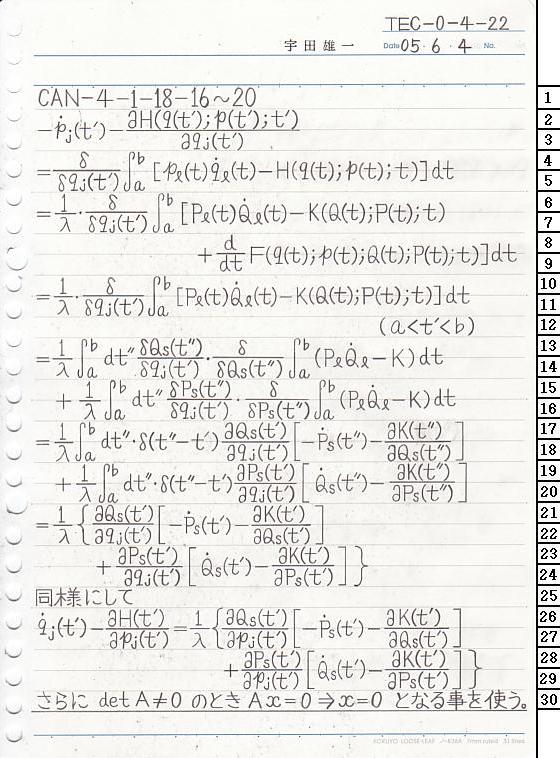 TEC-0-4-22
宇田雄一 Date 05・6・4 No.
CAN-4-1-18-16~20
-ṗj(t′)-∂H(q(t′);p(t′);t′)/∂qj(t′)
=δ/δqj(t′)∫ₐᵇ[pℓ(t)q̇ℓ(t)-H(q(t);p(t);t)]dt
=1/λ・δ/δqj(t′)∫ₐᵇ[Pℓ(t)Q̇ℓ(t)-K(Q(t);P(t);t)
+d/dt F(q(t);p(t);Q(t);P(t);t)]dt
=1/λ・δ/δqj(t′)∫ₐᵇ[Pℓ(t)Q̇ℓ(t)-K(Q(t);P(t);t)]dt
(a<t′<b)
=1/λ∫ₐᵇdt″δQs(t″)/δqj(t′)・δ/δQs(t″)∫ₐᵇ(PℓQ̇ℓ-K)dt
+1/λ∫ₐᵇdt″δPs(t″)/δqj(t′)・δ/δPs(t″)∫ₐᵇ(PℓQ̇ℓ-K)dt
=1/λ∫ₐᵇdt″・δ(t″-t′)∂Qs(t′)/∂qj(t′)[-Ṗs(t″)-∂K(t″)/∂Qs(t″)]
+1/λ∫ₐᵇdt″・δ(t″-t′)∂Ps(t′)/∂qj(t′)[Q̇s(t″)-∂K(t″)/∂Ps(t″)]
=1/λ{∂Qs(t′)/∂qj(t′)[-Ṗs(t′)-∂K(t′)/∂Qs(t′)]
+∂Ps(t′)/∂qj(t′)[Q̇s(t′)-∂K(t′)/∂Ps(t′)]}
同様にして
q̇j(t′)-∂H(t′)/∂pj(t′)=1/λ{∂Qs(t′)/∂pj(t′)[-Ṗs(t′)-∂K(t′)/∂Qs(t′)]
+∂Ps(t′)/∂pj(t′)[Q̇s(t′)-∂K(t′)/∂Ps(t′)]}
さらに det A≠0 のとき Ax=0⇒x=0 となる事を使う。
1
2
3
4
5
6
7
8
9
10
11
12
13
14
15
16
17
18
19
20
21
22
23
24
25
26
27
28
29
30